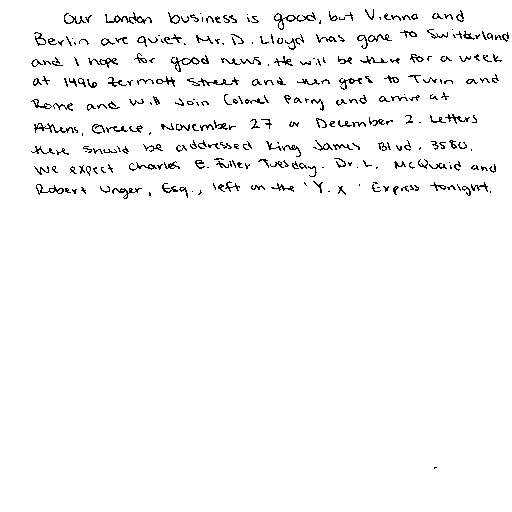 Our London business is good, but Vienna and
Berlin are quiet. Mr. D. Lloyd has gone to Switzerland
and I hope for good news. He will be there for a week
at 1496 Zermott Street and then goes to Turin and
Rome and will join Colonel Parry and arrive at
Athens, Greece, November 27 or December 2. Letters
there should be addressed King James Blvd. 3580.
We expect Charles E. Fuller Tuesday. Dr. L. McQuaid and
Robert Unger, Esq., left on the 'Y. X' Express tonight.